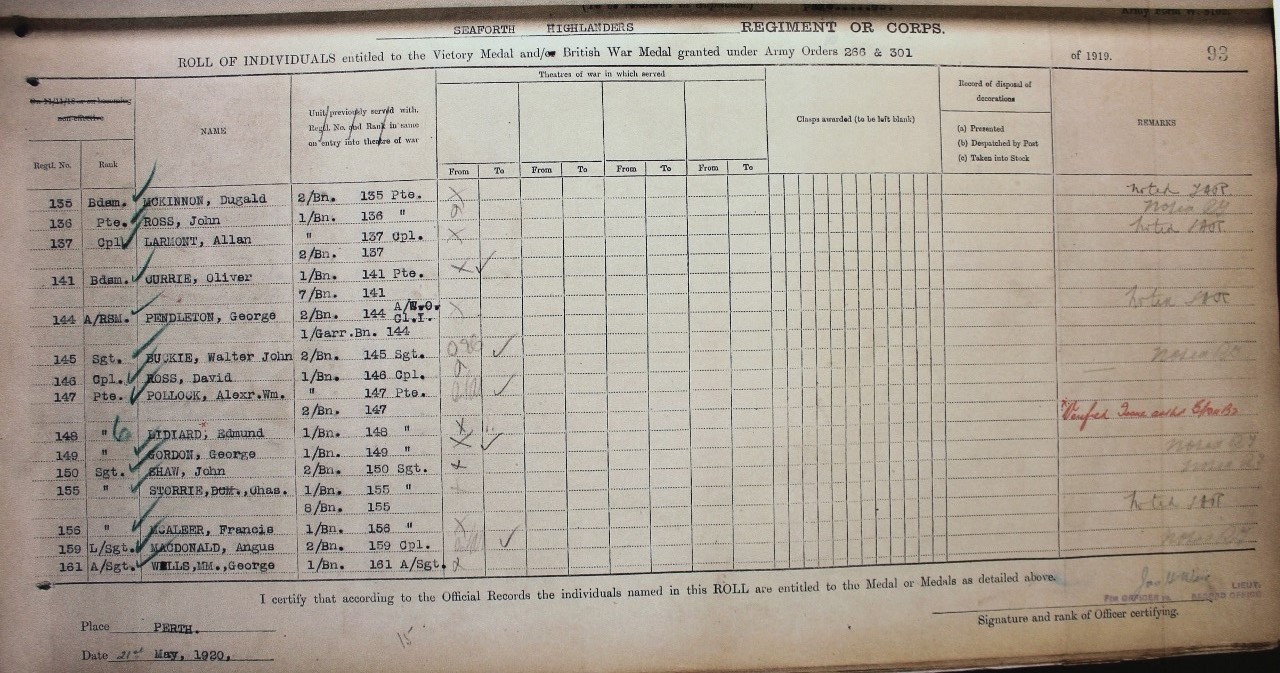 SEAFORTH HIGHLANDERS REGIMENT OR CORPS.
ROLL OF INDIVIDUALS entitled to the Victory Medal and/or British War Medal granted under Army Orders 266 & 301 of 1919. 93
Theatres of war in which served
On 11/11/18 or on becoming non-effective
NAME
Unit previously served with, Regtl. No. and Rank in same on entry into theatre of war
Clasps awarded (to be left blank)
Record of disposal of decorations
(a) Presented
(b) Despatched by Post
(c) Taken into Stock
REMARKS
Regtl. No. Rank From To From To From To From To
135 Bdsm. MCKINNON, Dugald 2/Bn. 135 Pte. X noted
136 Pte. ROSS, John 1/Bn. 136 "
137 Cpl LARMONT, Allan " 137 Cpl. X noted
2/Bn. 137
141 Bdsm. CURRIE, Oliver 1/Bn. 141 Pte. X
7/Bn. 141
144 A/RSM. PENDLETON, George 2/Bn. 144 A/W.O. Cl.I. X noted
1/Garr.Bn. 144
145 Sgt. BUCKIE, Walter John 2/Bn. 145 Sgt.
146 Cpl. ROSS, David 1/Bn. 146 Cpl.
147 Pte. POLLOCK, Alexr.Wm. " 147 Pte.
2/Bn. 147
148 " LIDIARD, Edmund 1/Bn. 148 " X
149 " GORDON, George 1/Bn. 149 " X
150 Sgt. SHAW, John 2/Bn. 150 Sgt. X
155 " STORRIE,DCM.,Chas. 1/Bn. 155 "
8/Bn. 155 noted
156 " MCALEER, Francis 1/Bn. 156 " X
159 L/Sgt. MACDONALD, Angus 2/Bn. 159 Cpl.
161 A/Sgt. WELLS,MM.,George 1/Bn. 161 A/Sgt.
I certify that according to the Official Records the individuals named in this ROLL are entitled to the Medal or Medals as detailed above.
LIEUT.
FOR OFFICER i/c RECORD OFFICE
Signature and rank of Officer certifying.
Place PERTH.
15
Date 21st May, 1920,